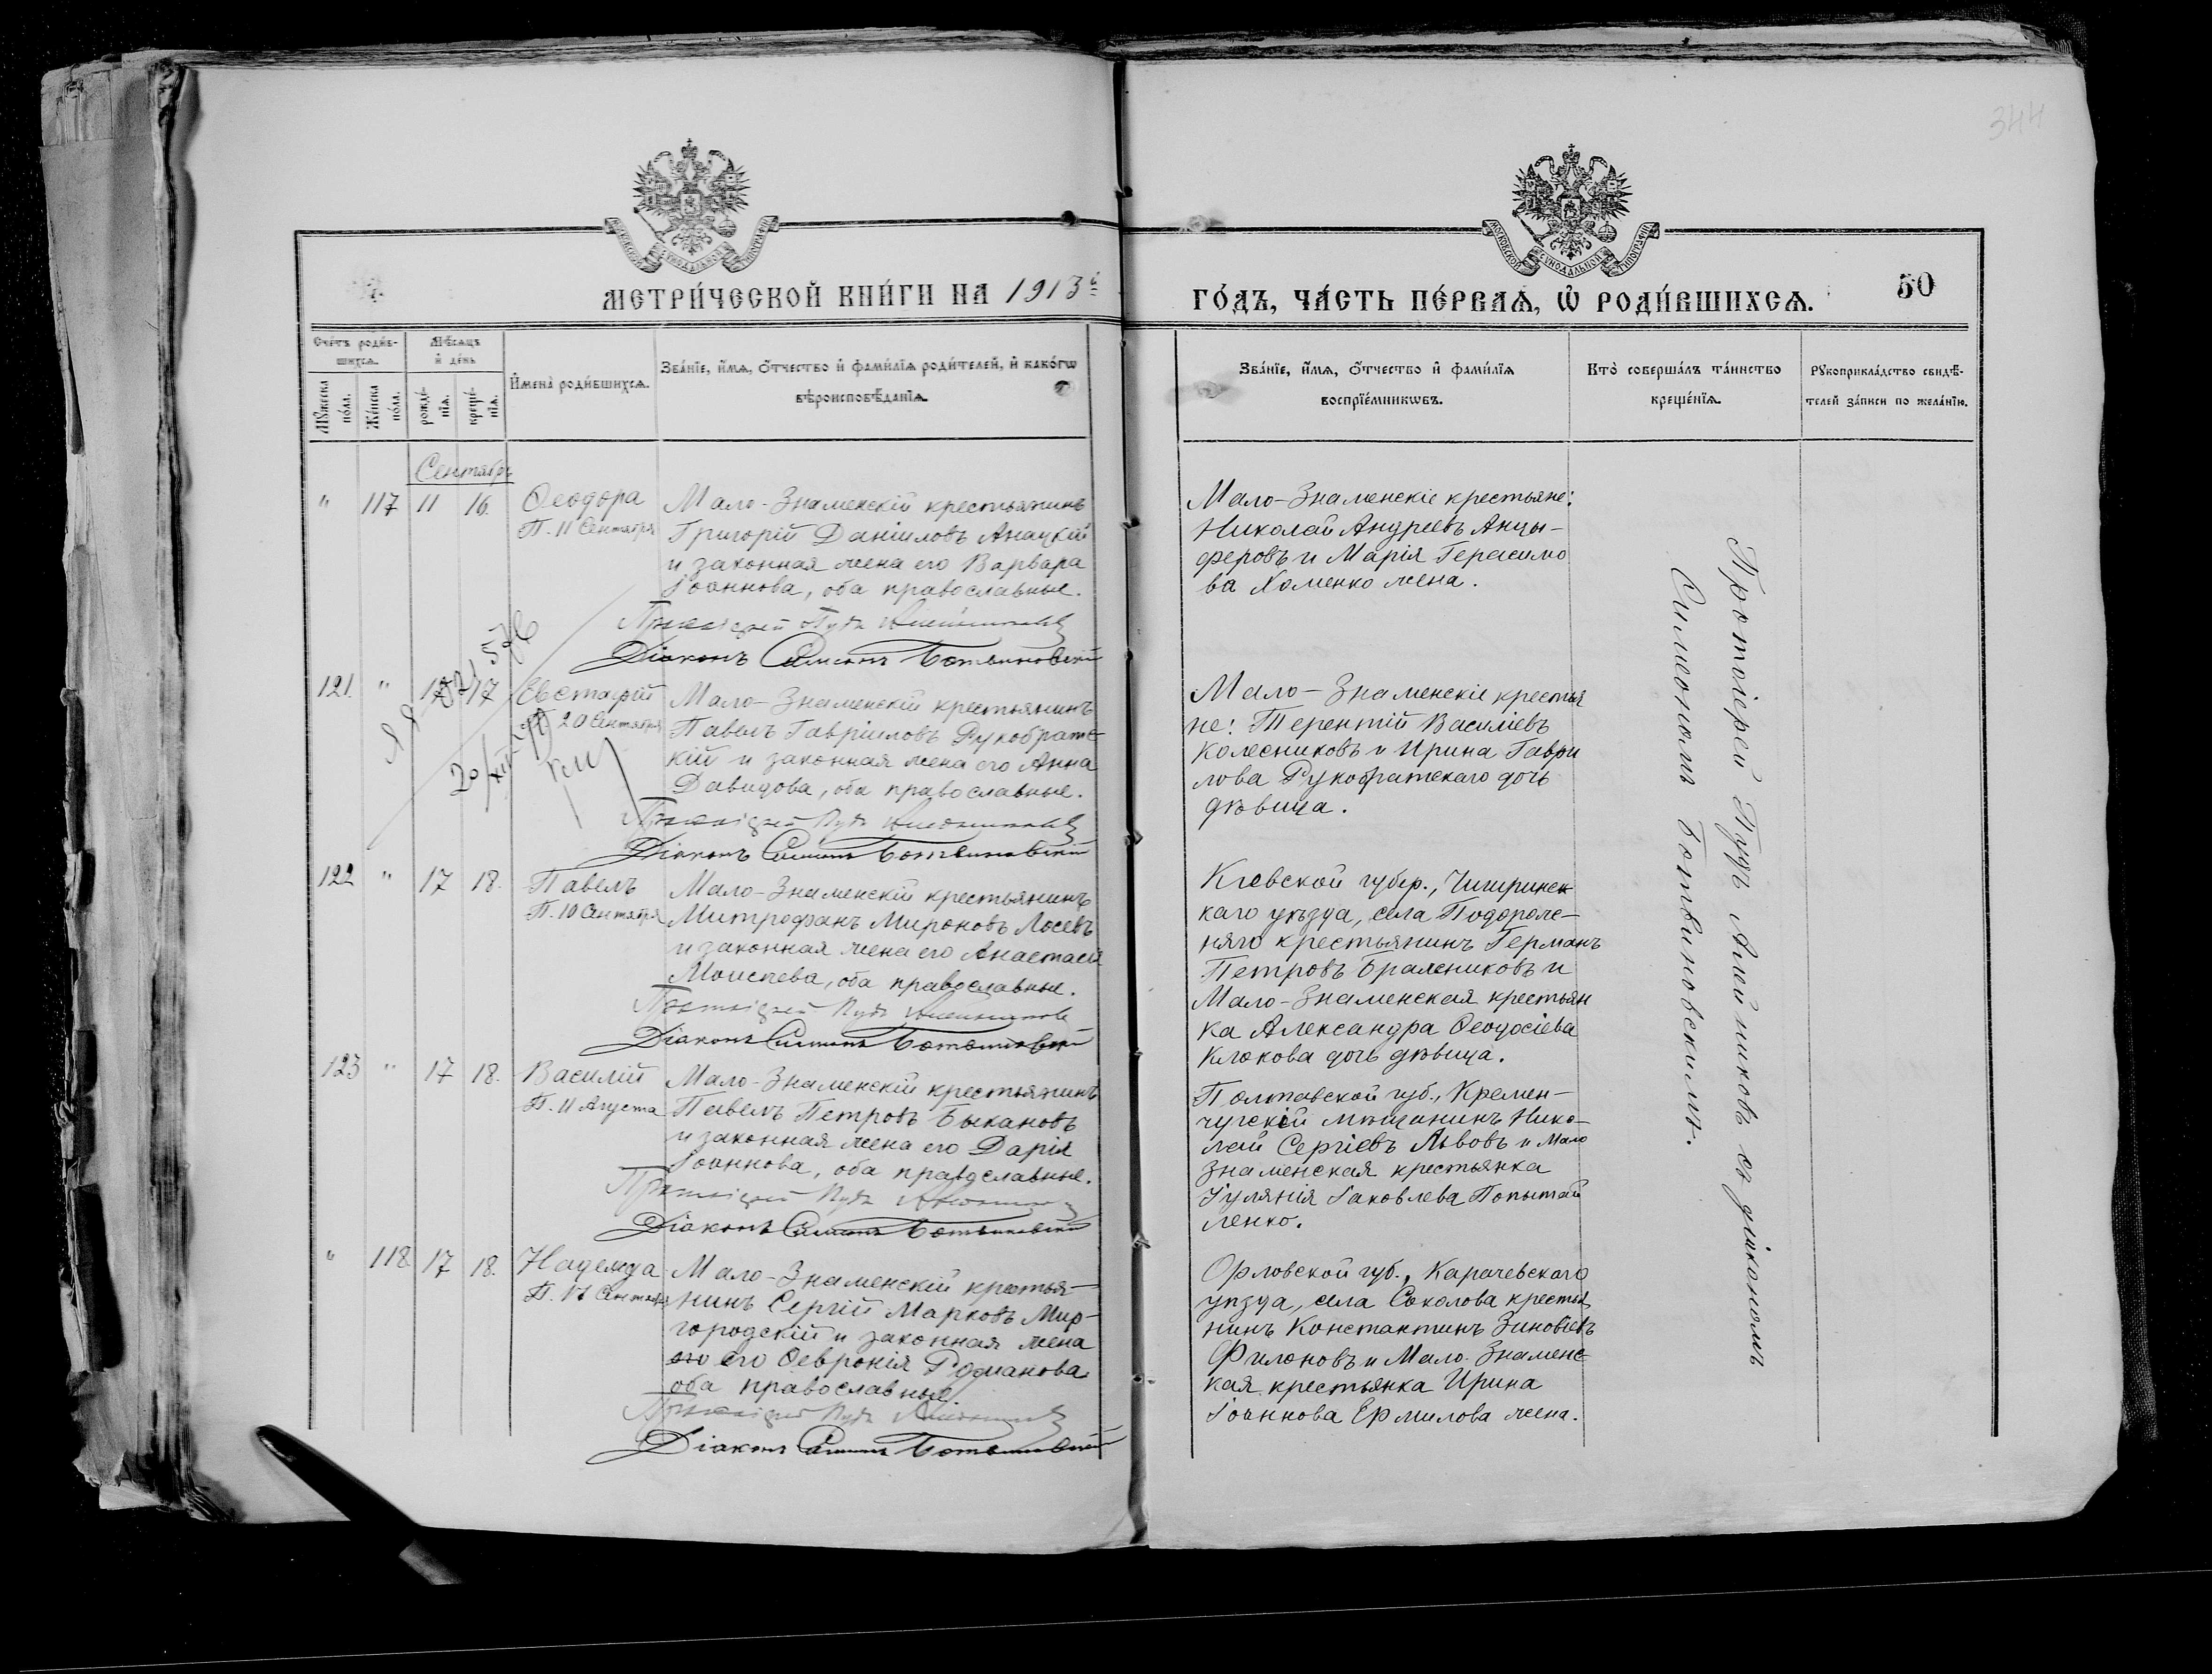 344
МОСКОВСКОЙ СУНОДАЛЬНОЙ ТИПОГРАФІИ
МЕТРИ́ЧЕСКОЙ КНИ́ГИ НА 1913й
Сче́тъ роди́вшихсѧ.
Мꙋ́жеска по́ла.
Же́нска по́ла.
Мѣ́сѧцъ и҆ де́нь
рожде́нїѧ.
креще́нїѧ.
И҆мена̀ роди́вшихсѧ.
Зва́нїе, и҆́мѧ, ѻ҆́тчество и҆ фами́лїѧ роди́телей, и҆ како́гѡ
вѣроисповѣ́данїѧ.
Сентябрь
" 117 11 16.
Ѳеодора
П. 11 Сентября
Мало-Знаменскій крестьянинъ
Григорій Даніиловъ Анацкій
и законная жена его Варвара
Іоаннова, оба православные.
Протоіерей Пудъ
Діаконъ Симеонъ Ботвиновскій
121. " 17 17
Евстафій
П. 20 Сентября
Мало-Знаменскій крестьянинъ
Павелъ Гавріиловъ Рукобратс-
кій и законная жена его Анна
Давидова, оба православные.
Протоіерей Пудъ
Діаконъ Симеонъ Ботвиновскій
122 " 17 18.
Павелъ
П. 10 Сентября
Мало-Знаменскій крестьянинъ
Митрофанъ Мироновъ Лосевъ
и законная жена его Анастасія
Моисеева, оба православные.
Протоіерей Пудъ
Діаконъ Симеонъ Ботвиновскій
123 " 17 18.
Василій
П. 11 Августа
Мало-Знаменскій крестьянинъ
Павелъ Петровъ Быкановъ
и законная жена его Дарія
Іоаннова, оба православные.
Протоіерей Пудъ
Діаконъ Симеонъ Ботвиновскій
" 118. 17 18.
Надежда
П. 17 Сентября
Мало-Знаменскій крестья-
нинъ Сергій Марковъ Мир-
городскій и законная жена
его его Ѳевронія Романова
оба православные.
Протоіерей Пудъ
Діаконъ Симеонъ Ботвиновскій
МОСКОВСКОЙ СУНОДАЛЬНОЙ ТИПОГРАФІИ
ГО́ДЪ, ЧА́СТЬ ПЕ́РВАѦ, Ѡ҆ РОДИ́ВШИХСѦ.
50
Зва́нїе, и҆́мѧ, ѻ҆́тчество и҆ фами́лїѧ
воспрїе́мникѡвъ.
Кто̀ соверша́лъ та́инство
креще́нїѧ.
Рꙋкоприкла́дство свидѣ́-
телей за́писи по жела́нїю.
Мало-Знаменскіе крестьяне:
Николай Андреевъ Анцы-
феровъ и Марія Герасимо
ва Хоменко жена.
Мало-Знаменскіе крестья
не: Терентій Василіевъ
Колесниковъ и Ирина Гаври
лова Рукобратскаго дочь
дѣвица.
Кіевской губер., Чигиринск
каго уѣзда, села Подорож-
няго крестьянинъ Германъ
Петровъ Бражниковъ и
Мало-Знаменская крестьян
ка Александра Ѳеодосіева
Клокова дочь дѣвица.
Полтавской губ., Кремен-
чугскій мѣщанинъ Нико-
лай Сергіевъ Львовъ и Мало
Знаменская крестьянка
Іуліянія Іаковлева Попытай
ленко.
Орловской губ., Карачевскаго
уѣзда, села Соколова крестья
нинъ Константинъ Зиновіевъ
Филоновъ и Мало-Знаменс
кая крестьянка Ирина
Іоаннова Ермилова жена.
Протоіерей Пудъ Алейниковъ съ діакономъ
Симеономъ Ботвиновскимъ.